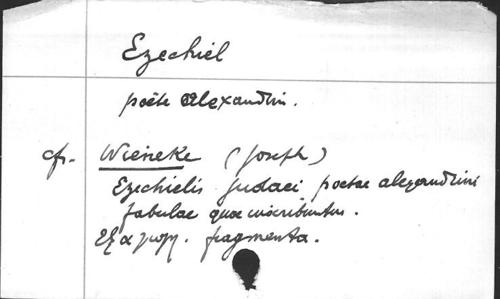 Ezechiel
poète alexandrin.
cfr. Wieneke (Joseph)
Ezechielis Judaei poetae alexandrini
fabulae quae inscribuntur.
Ἐξαγωγη. fragmenta.